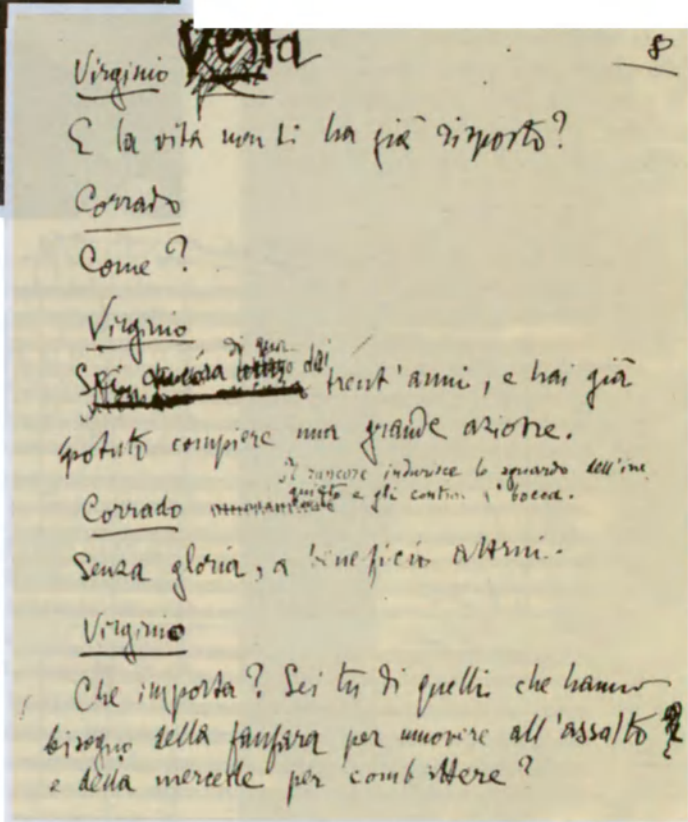 Virginio Vesta
8
E la vita non ti ha già risposto?
Corrado
Come?
Virginio
di qua
Sei ancora dai trent'anni, e hai già
potuto compiere una grande azione.
Il rancore indurisce lo sguardo dell'in
quieto e gli contrae la bocca.
Corrado
Senza gloria, a beneficio altrui.
Virginio
Che importa? Sei tu di quelli che hanno
bisogno della fanfara per muovere all'assalto
e della mercede per combattere?